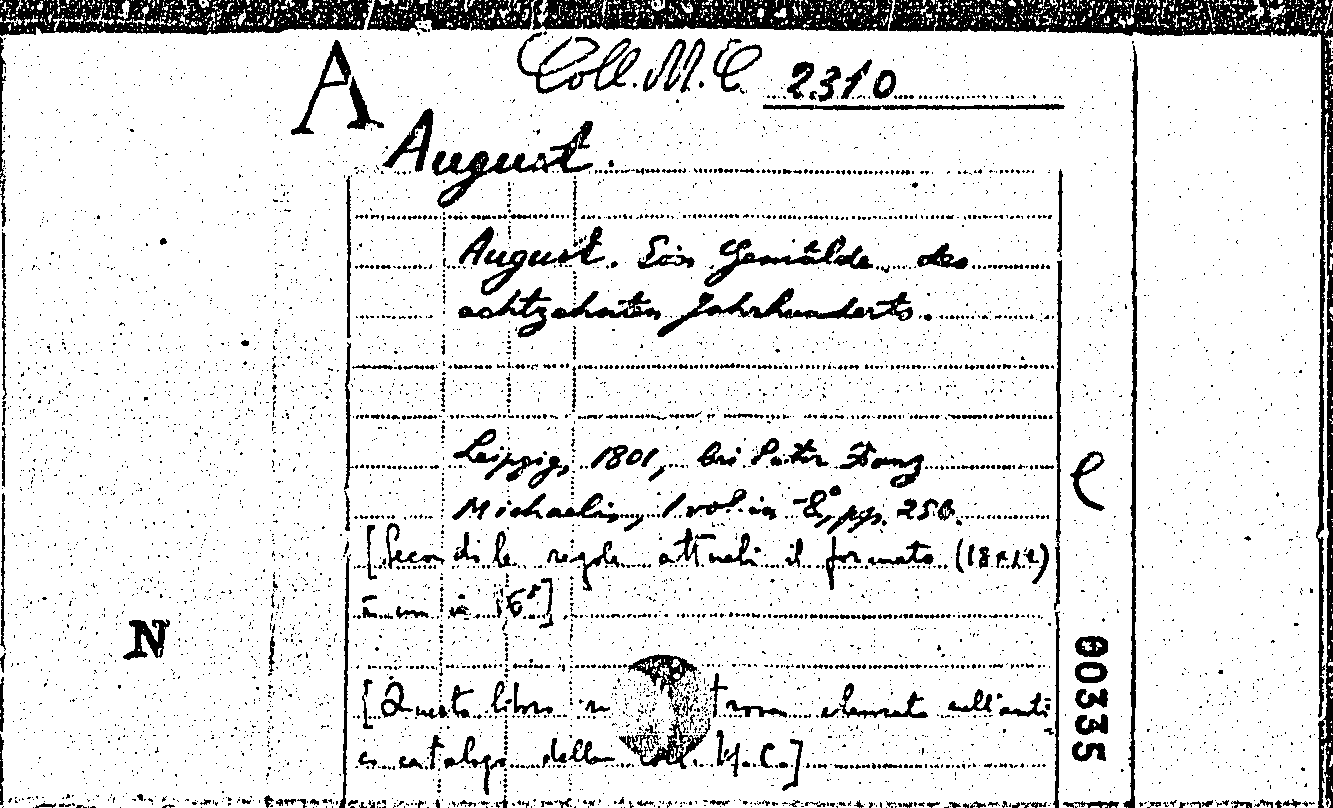 A
Coll. M. C. 2310
August.
August. Ein Gemälde des
achtzehnten Jahrhunderts.
Leipzig, 1801, bei Peter Franz
Michaelis, 1 vol. in -8°, pp. 250.
[Secondo le regole attuali il formato (18x12)
è un in 16°]
[Questo libro si trova elencato sull'anti
co catalogo della coll. M.C.]
N
e
00335